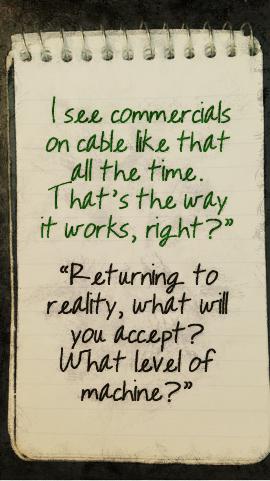 I see commercials
on cable like that
all the time.
That's the way
it works, right?”
“Returning to
reality, what will
you accept?
What level of
machine?”